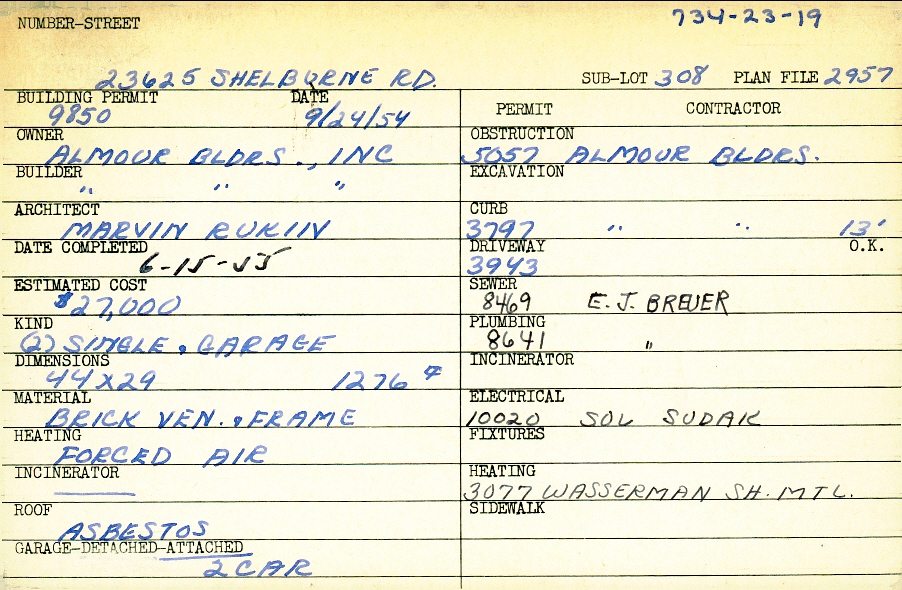 NUMBER-STREET 734-23-19
23625 SHELBURNE RD. SUB-LOT 308 PLAN FILE 2957
BUILDING PERMIT DATE
9850 9/24/54
PERMIT CONTRACTOR
OWNER
ALMOUR BLDRS., INC
OBSTRUCTION
5057 ALMOUR BLDRS.
BUILDER
" " "
EXCAVATION
ARCHITECT
MARVIN RUKIN
CURB
3797 " " 13'
DATE COMPLETED
6-15-55
DRIVEWAY O.K.
3943
ESTIMATED COST
$27,000
SEWER
8469 E. J. BREUER
KIND
(2) SINGLE, GARAGE
PLUMBING
8641 "
DIMENSIONS
44X29 1276
INCINERATOR
MATERIAL
BRICK VEN., FRAME
ELECTRICAL
10020 SOL SUDAK
HEATING
FORCED AIR
FIXTURES
INCINERATOR
HEATING
3077 WASSERMAN SH. MTL.
ROOF
ASBESTOS
SIDEWALK
GARAGE-DETACHED-ATTACHED
2 CAR